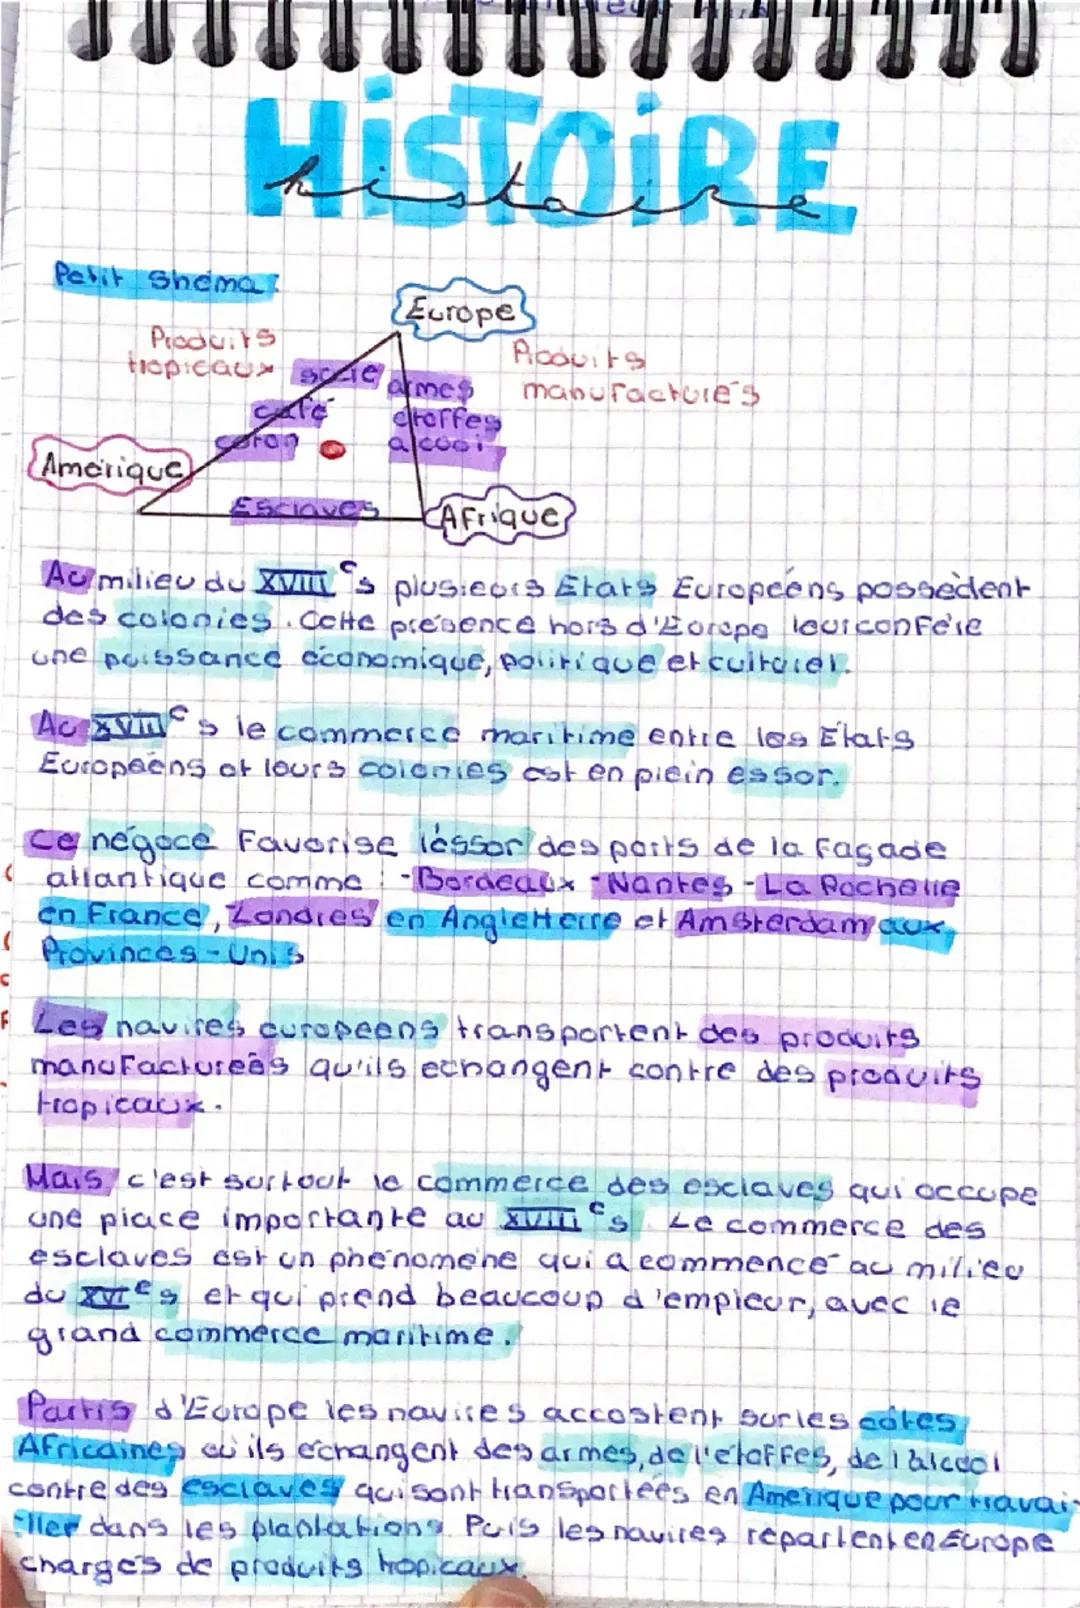 HiSTOiRE
histoire
Petit shéma :
Europe
Produits
tropicaux
Produits
manufacturés
sucre
armes
café
étoffes
coton
alcool
Amérique
Esclaves
Afrique
Au milieu du XVIII e s plusieurs Etats Européens possèdent
des colonies. Cette présence hors d'Europe leur confère
une puissance économique, politique et culturel.
Au XVIII e s le commerce maritime entre les États
Européens et leurs colonies est en plein essor.
Ce négoce Favorise léssor des ports de la façade
atlantique comme : -Bordeaux -Nantes -La Rochelle
en France, Londres en Angletterre et Amsterdam aux
Provinces-Unis
Les navires européens transportent des produits
manufactureés qu'ils echangent contre des produits
tropicaux.
Mais c'est surtout le commerce des esclaves qui occupe
une place importante au XVIII e s. Le commerce des
esclaves est un phénomène qui a commencé au milieu
du XVI e s et qui prend beaucoup d'empleur, avec le
grand commerce maritime.
Partis d'Europe les navires accostent sur les côtes
Africaines où ils échangent des armes, de l'étoffes, de l'alcool
contre des esclaves qui sont transportées en Amérique pour travai-
-ller dans les plantations. Puis les navires repartent en Europe
chargés de produits tropicaux.